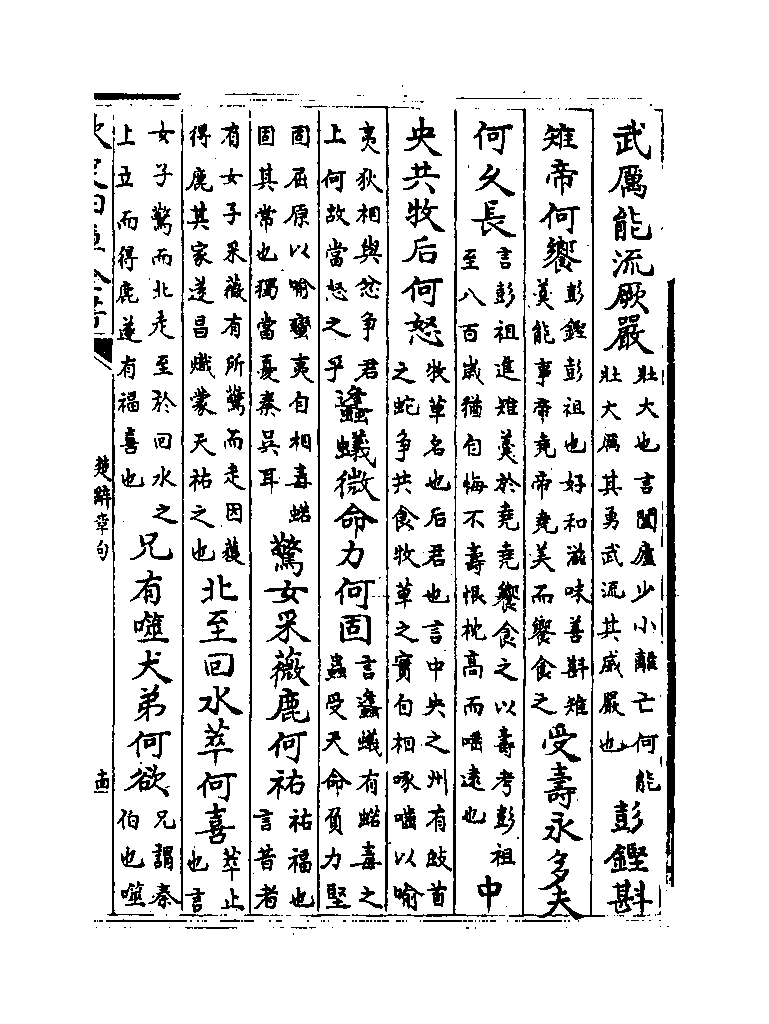 武厲能流厥嚴壯大也言闔廬少小離亡何能壯大厲其勇武流其威嚴也彭鏗斟
雉帝何饗彭鏗彭祖也好和滋味善斟雉羮能事帝堯帝堯美而饗食之受壽永多夫
何久長言彭祖進雉羮於堯堯饗食之以壽考彭祖至八百歲猶自悔不壽恨枕高而唾逺也中
央共牧后何怒牧草名也后君也言中央之州有歧首之蛇爭共食牧草之實自相啄嚙以喻
夷狄相與忿爭君上何故當怒之乎蠭蟻微命力何固言蠭蟻有蛣毒之蟲受天命負力堅
固屈原以喻蠻夷自相毒蛣固其常也獨當憂秦吳耳驚女采薇鹿何祐祐福也言昔者
有女子采薇有所驚而走因獲得鹿其家遂昌熾蒙天祐之也北至回水萃何喜萃止也言
女子驚而北走至於回水之上立而得鹿遂有福喜也兄有噬犬弟何欲兄謂秦伯也噬
楚辭章句